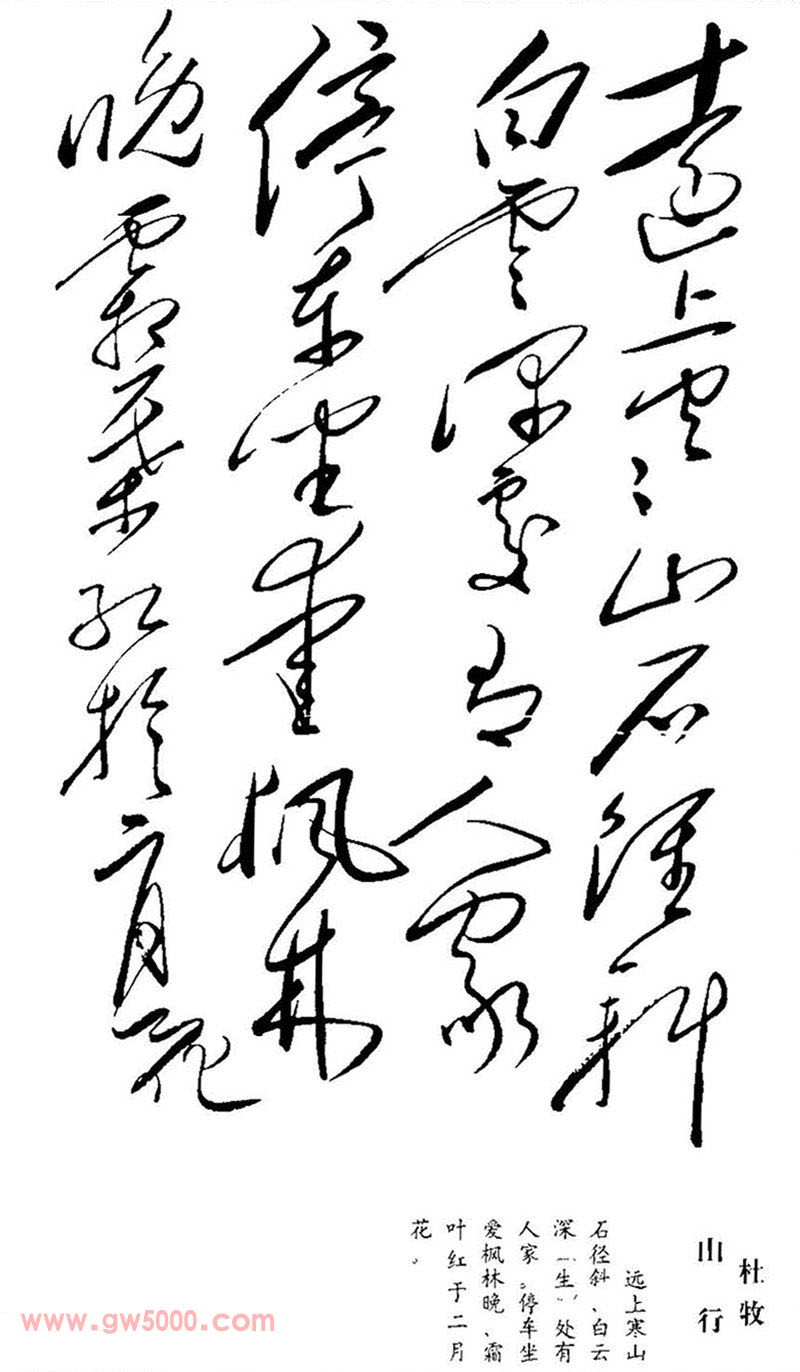 遠上寒山石徑斜
白雲深處有人家
停車坐愛楓林
晚霜葉紅於二月花
杜牧
山行
远上寒山
石径斜、白云
深「生」处有
人家。停车坐
爱枫林晚、霜
叶红于二月
花。
www.gw5000.com